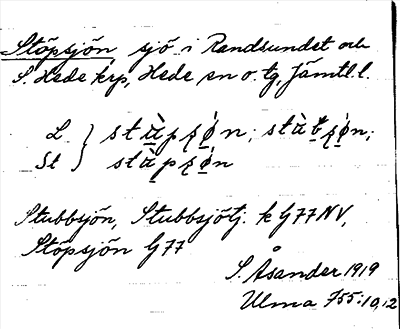 Stöpsjön sjö i Randsundet och
S. Hede krp, Hede sn o. tg, Jämtl. l.
L. } stàpʂǿn; stàbʂǿn;
St } stàpʂǿn
Stubbsjön, Stubbsjötj. k G77 NV,
Stöpsjön G77
S. Åsander 1919
Ulma 755:10,12